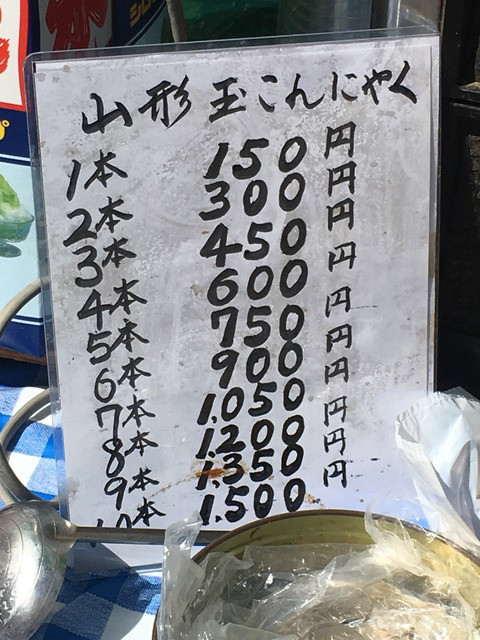 山形 玉こんにゃく
1本 150円
2本 300円
3本 450円
4本 600円
5本 750円
6本 900円
7本 1.050円
8本 1.200円
9本 1.350円
10本 1.500円